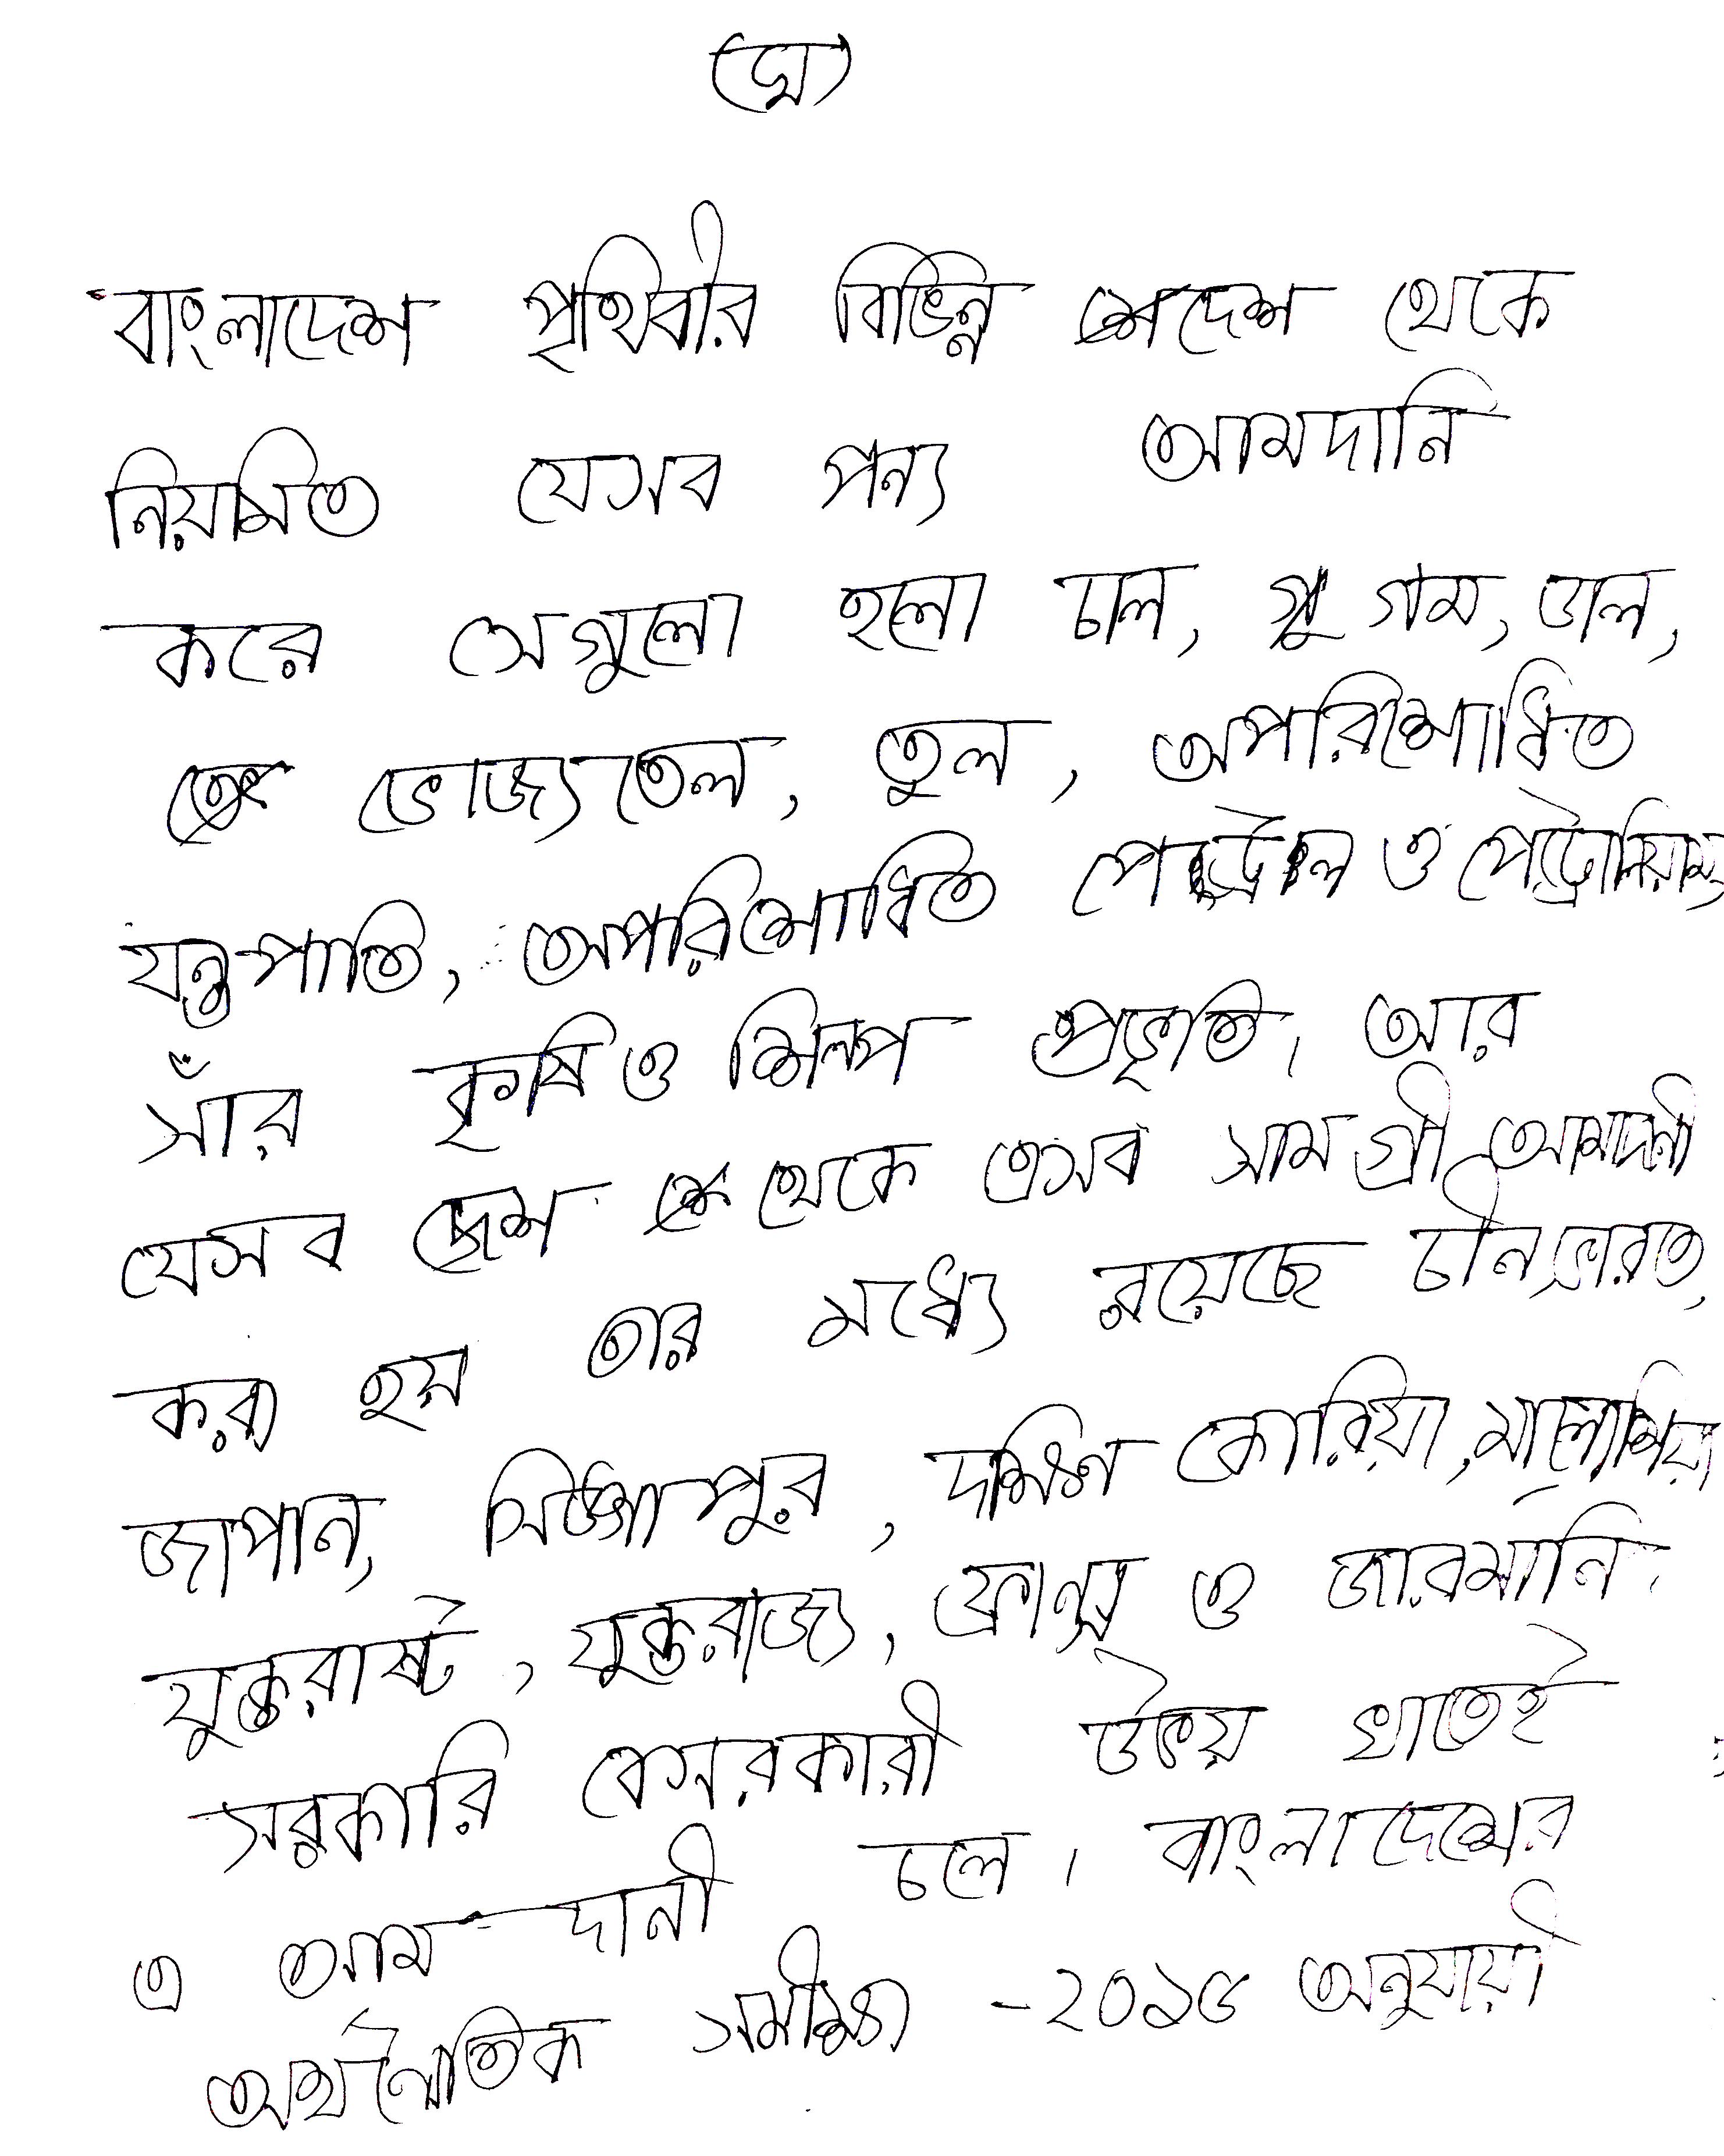 বাংলাদেশ পৃথিবীর বিভিন্ন দেশ থেকে
নিয়মিত যেসব পন্য আমদানি
করে সেগুলো হলো চাল, গম, ডাল,
ভোজ্যতেল, তুল, অপরিশোধিত
যন্ত্রপাতি, অপরিশোধিত পেট্রোল ও পেট্রোলিয়াম,
সাঁর কৃষি ও শিল্প প্রভৃতি। আর
যেসব দেশ থেকে এসব সামগ্রী আমদানী
করা হয় তার মধ্যে রয়েছে চীন, ভারত,
জাপান, সিঙ্গাপুর, দক্ষিণ কোরিয়া, মালেশিয়া
যুক্তরাষ্ট, যুক্তরাজ্য, ফ্রান্স ও জারর্মানি।
সরকারি বেসরকারী উভয় খাতেই
এ আমদানী চলে। বাংলাদেশের
অর্থনৈতিক সমীক্ষা -২০১৫ অনুযায়ী